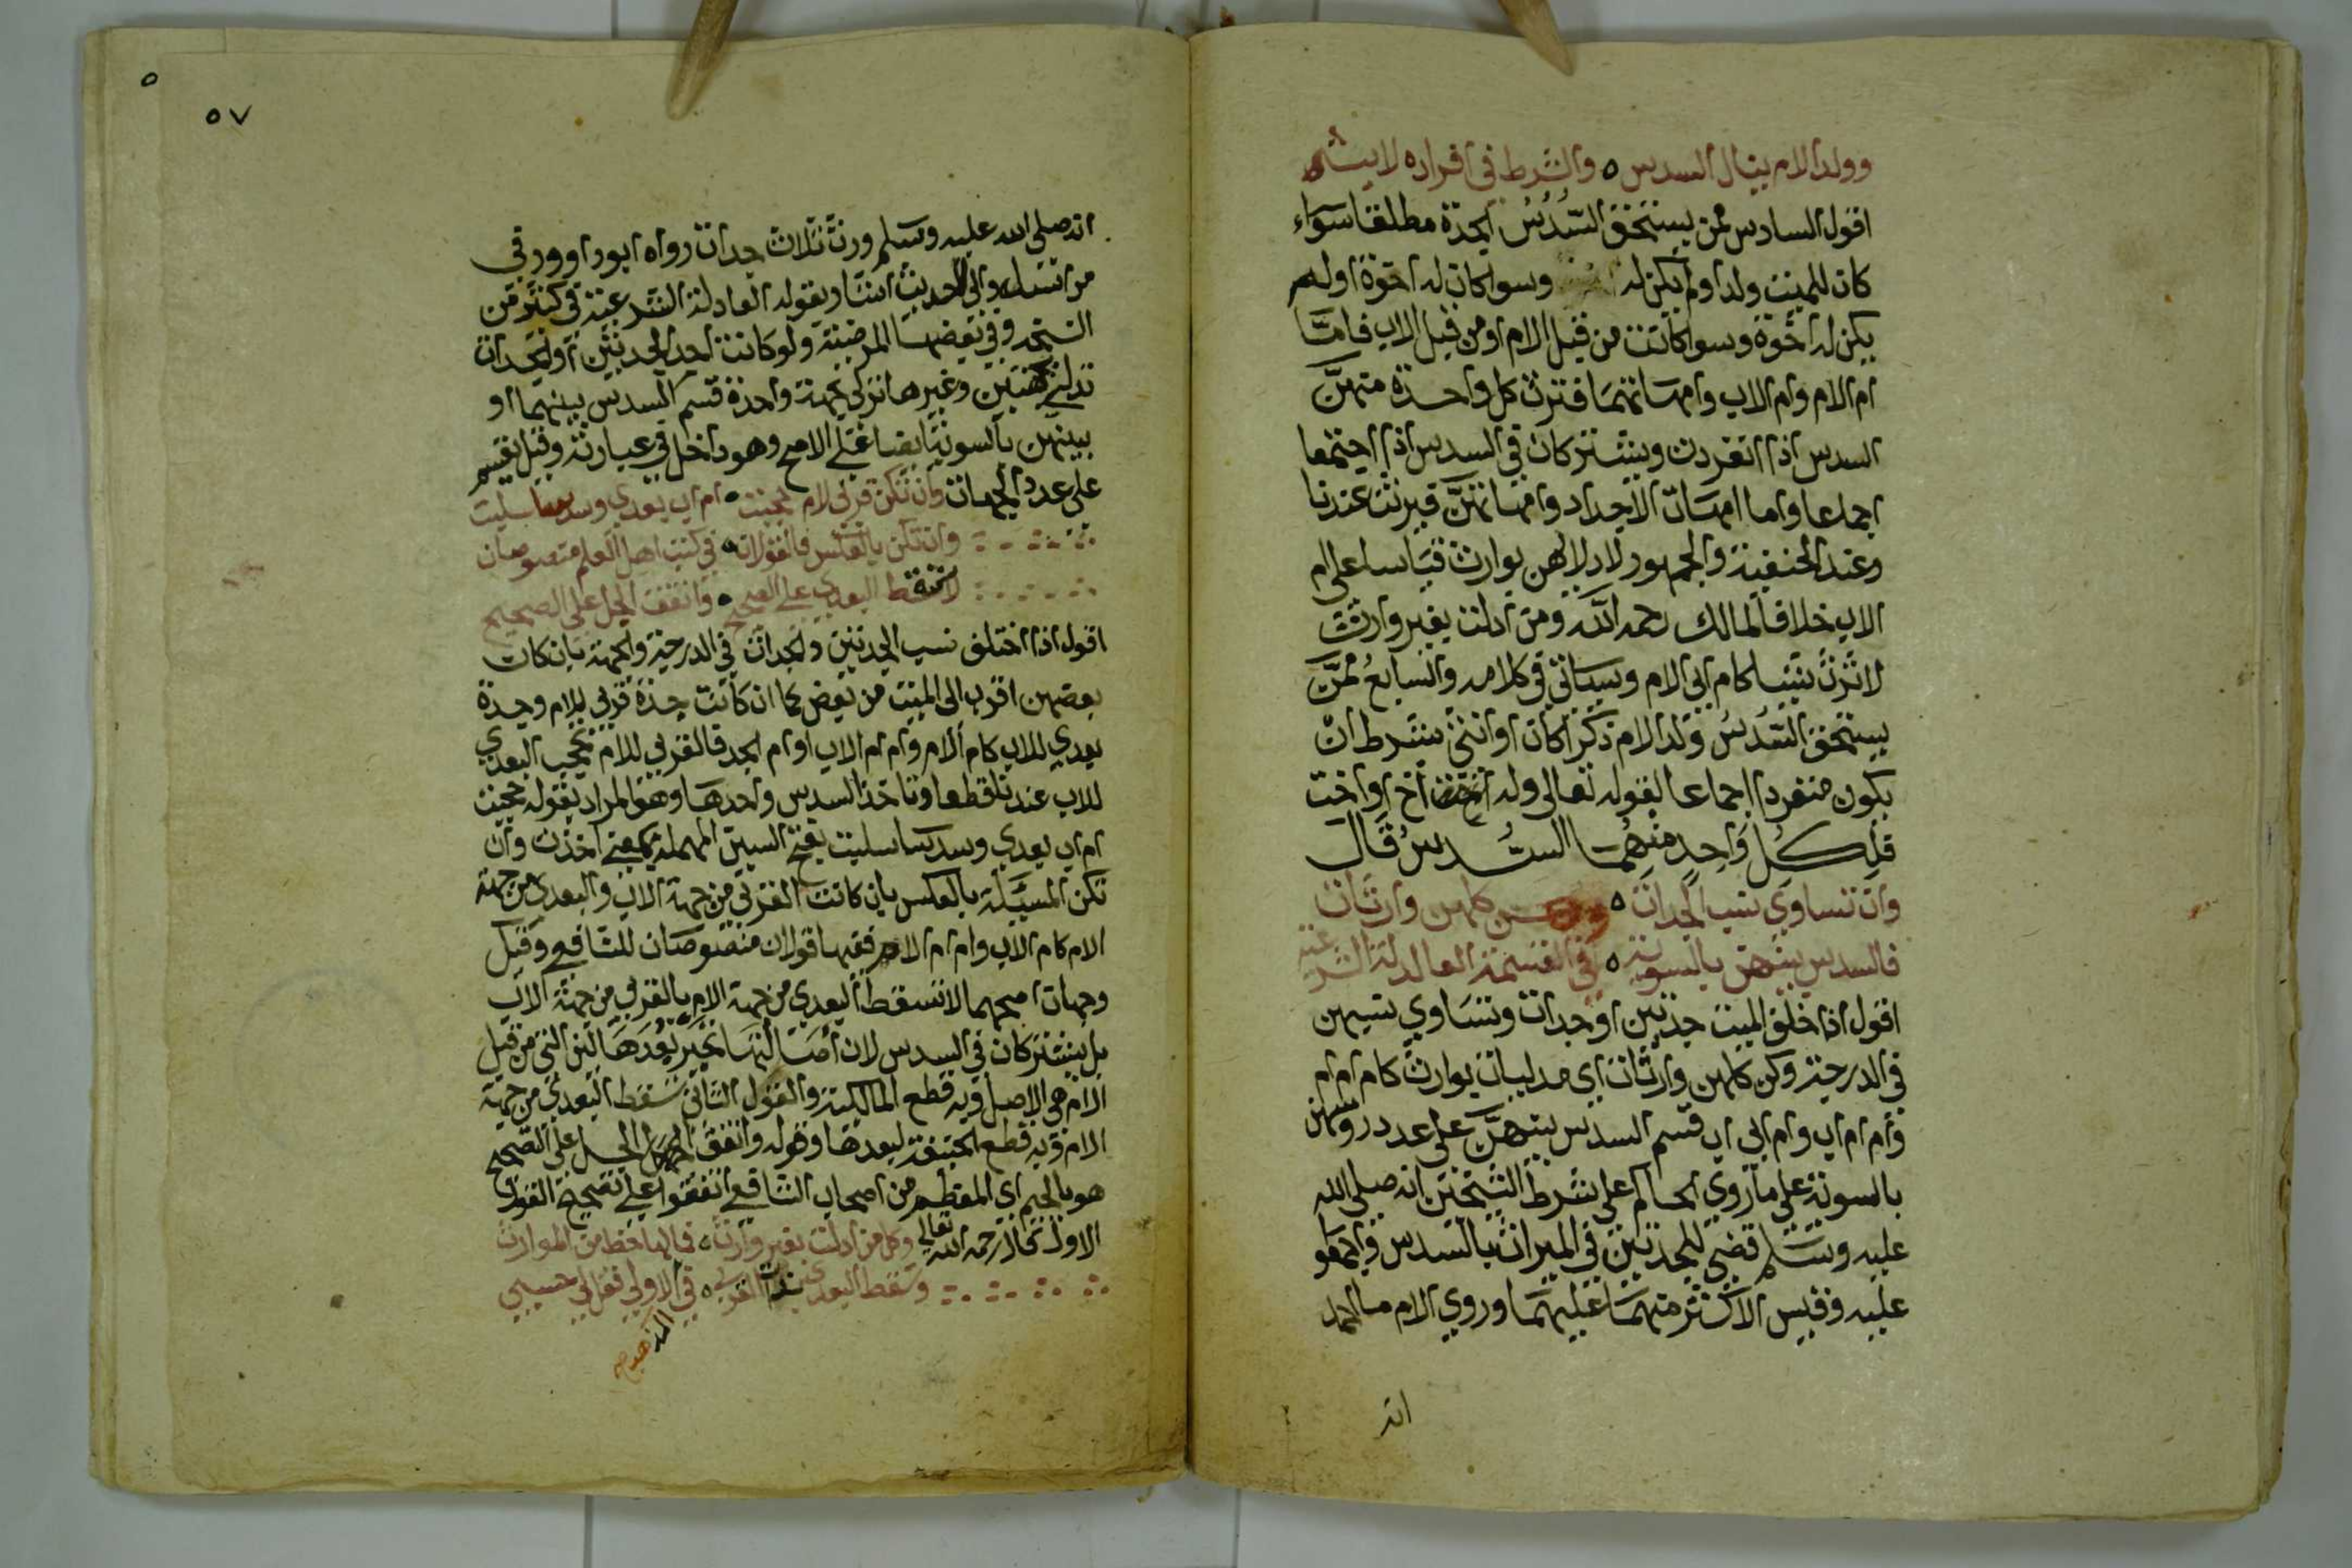 وولد الام ينال السدس ه والشرط في افراده لا ينسى
اقول السادس ممن يستحق السُّدُسَ الجدة مطلقا سواء
كان للميت ولد او لم يكن له وسوا كان له اخوة او لم
يكن له اخوة وسوا كانت من قبل الام او من قبل الاب فامّا
ام الام وام الاب وامهاتهما فترث كل واحدة منهنَّ
السدس اذا انفردن ويشتركان في السدس اذا اجتمعا
اجماعا واما امهات الاجداد وامهاتهنّ فيرثن عندنا
وعند الحنفية والجمهور لادلالهن بوارث قياسا على ام
الاب خلافا لمالك رحمه الله ومن ادلت بغير وارث
لا ترث شيا كام ابي الام وسياتي في كلامه والسابعُ ممّن
يستحق السُّدُسَ ولد الام ذكرا كان او انثى بشرط ان
يكون منفردا اجماعا لقوله تعالى وله اخ او اخت
فلِكُلِّ وَاحِدٍ منهُمَا السُّدسُ قَال
وان تساوى نسب الجدات ه وكن كلهن وارثات
فالسدس بينهن بالسويه ه في القسمة العادلة الشرعيه
اقول اذا خلف الميت جدتين او جدات وتساوى نسبهن
في الدرجة وكن كلهن وارثات اى مدليات بوارث كام ام ام
وام ام اب وام ابي اب قسم السدس بينهنَّ على عدد روسهن
بالسوية على ما روى الحاكم على شرط الشيخين انه صلى الله
عليه وسلم قضى للجدتين في الميراث بالسدس واجمعوا
عليه وقيس الاكثر منهما عليهما وروى الامام احمد
انه
٥
٥٧
انه صلى الله عليه وسلم ورث ثلاث جدات رواه ابو داوود في
مراسيله والى الحديث اشار بقوله العادلة الشرعية في كثير من
النسخ وفي بعضها المرضية ولو كانت احدى الجدتين او الجدات
تدلي بجهتين وغيرها تدلي بجهة واحدة قسم السدس بينهما او
بينهن بالسوية ايضا على الاصح وهو داخل في عبارته وقيل يقسم
على عدد الجهات وان تكن قربى لام حجبت ه ام اب بعدى وسدسا سلبت
وان تكن بالعكس فالقولان ه في كتب اهل العلم منصوصان
لا تسقط البعدى على الصحيح ه واتفق الجل على الصحيح
اقول اذا اختلف نسب الجدتين والجدات في الدرجة والجهة بان كان
بعضهن اقرب الى الميت من بعض كما ان كانت جدة قربى للام وجدة
بعدى للاب كام الام وام ام الاب او ام الجد فالقربى للام تحجب البعدى
للاب عندنا قطعا وتاخذ السدس واحدها وهو المراد بقوله حجبت
ام اب بعدى وسدسا سلبت بفتح السين المهملة بمعنى اخذت وان
تكن المسئلة بالعكس بان كانت القربى من جهة الاب والبعدى من جهة
الام كام الاب وام ام الام ففيها قولان منصوصان للشافعي وقيل
وجهان اصحهما لا تسقط البعدى من جهة الام بالقربى من جهة الاب
بل يشتركان في السدس لان اصالتها تجبر بُعدَهَا لان التي من قبل
الام هي الاصل وبه قطع المالكية والقول الثاني تسقط البعدى من جهة
الام وبه قطع الحنفية لبعدها وقوله واتفق الجل على الصحيح
هو بالجيم اي المعظم من اصحاب الشافعي اتفقوا على تصحيح القول
الاول قال رحمه الله تعالى وكل من ادلت بغير وارث ه فما لها حظ من الموارث
وتسقط البعدى بذات القرب ه في الاولى فقل لي حسبي
المذهب صح